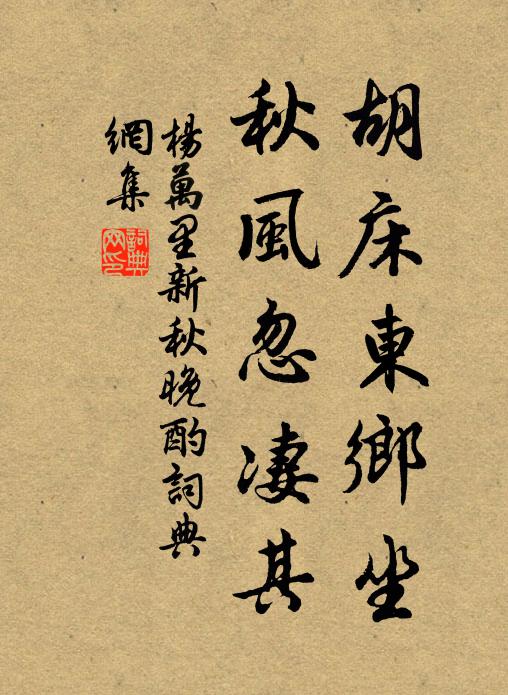 胡床東鄉坐
秋風忽凄其
楊萬里新秋晚酌詞典
網集
詞典網印